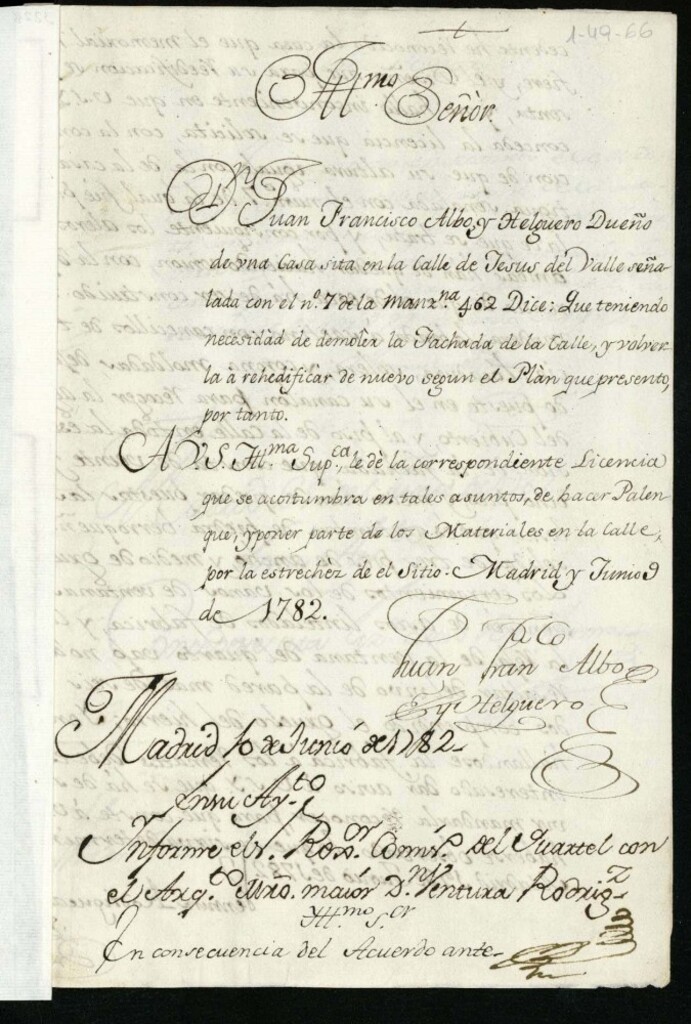 1-49-66
Yll.mo Señor.
D.n Juan Francisco Albo, y Helguero Dueño
de vna Casa sita en la Calle de Jesus del Valle seña-
lada con el n.º 7 de la manz.na 462 Dice: Que teniendo
necesidad de demoler la Fachada de la Calle, y volver-
la à rehedificar de nuevo segun el Plàn que presento,
por tanto.
A V.S. Yll.ma Sup.ca le dè la correspondiente Licencia
que se acostumbra en tales asuntos, de hacer Palen-
que, y poner parte de los Materiales en la Calle,
por la estrechèz de el Sitio: Madrid y Junio 9
de 1782.
Juan Fran.co Albo
y Helguero
Madrid 10 de Junio de 1782-
En su Ay.to
Ynforme el s.r Rex.or Comis.o del Quartel con
el Arq.to Mro. maior D.n Ventura Rodrig.z
Yll.mo S.or
En consecuencia del Acuerdo ante-